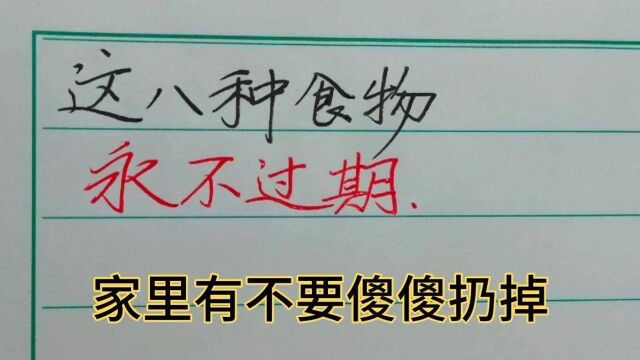 这八种食物
永不过期.
家里有不要傻傻扔掉